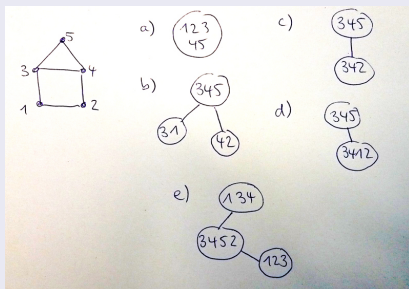 5
3 4
1 2
a) 123
45
b) 345
31 42
c) 345
342
d) 345
3412
e) 134
3452
123